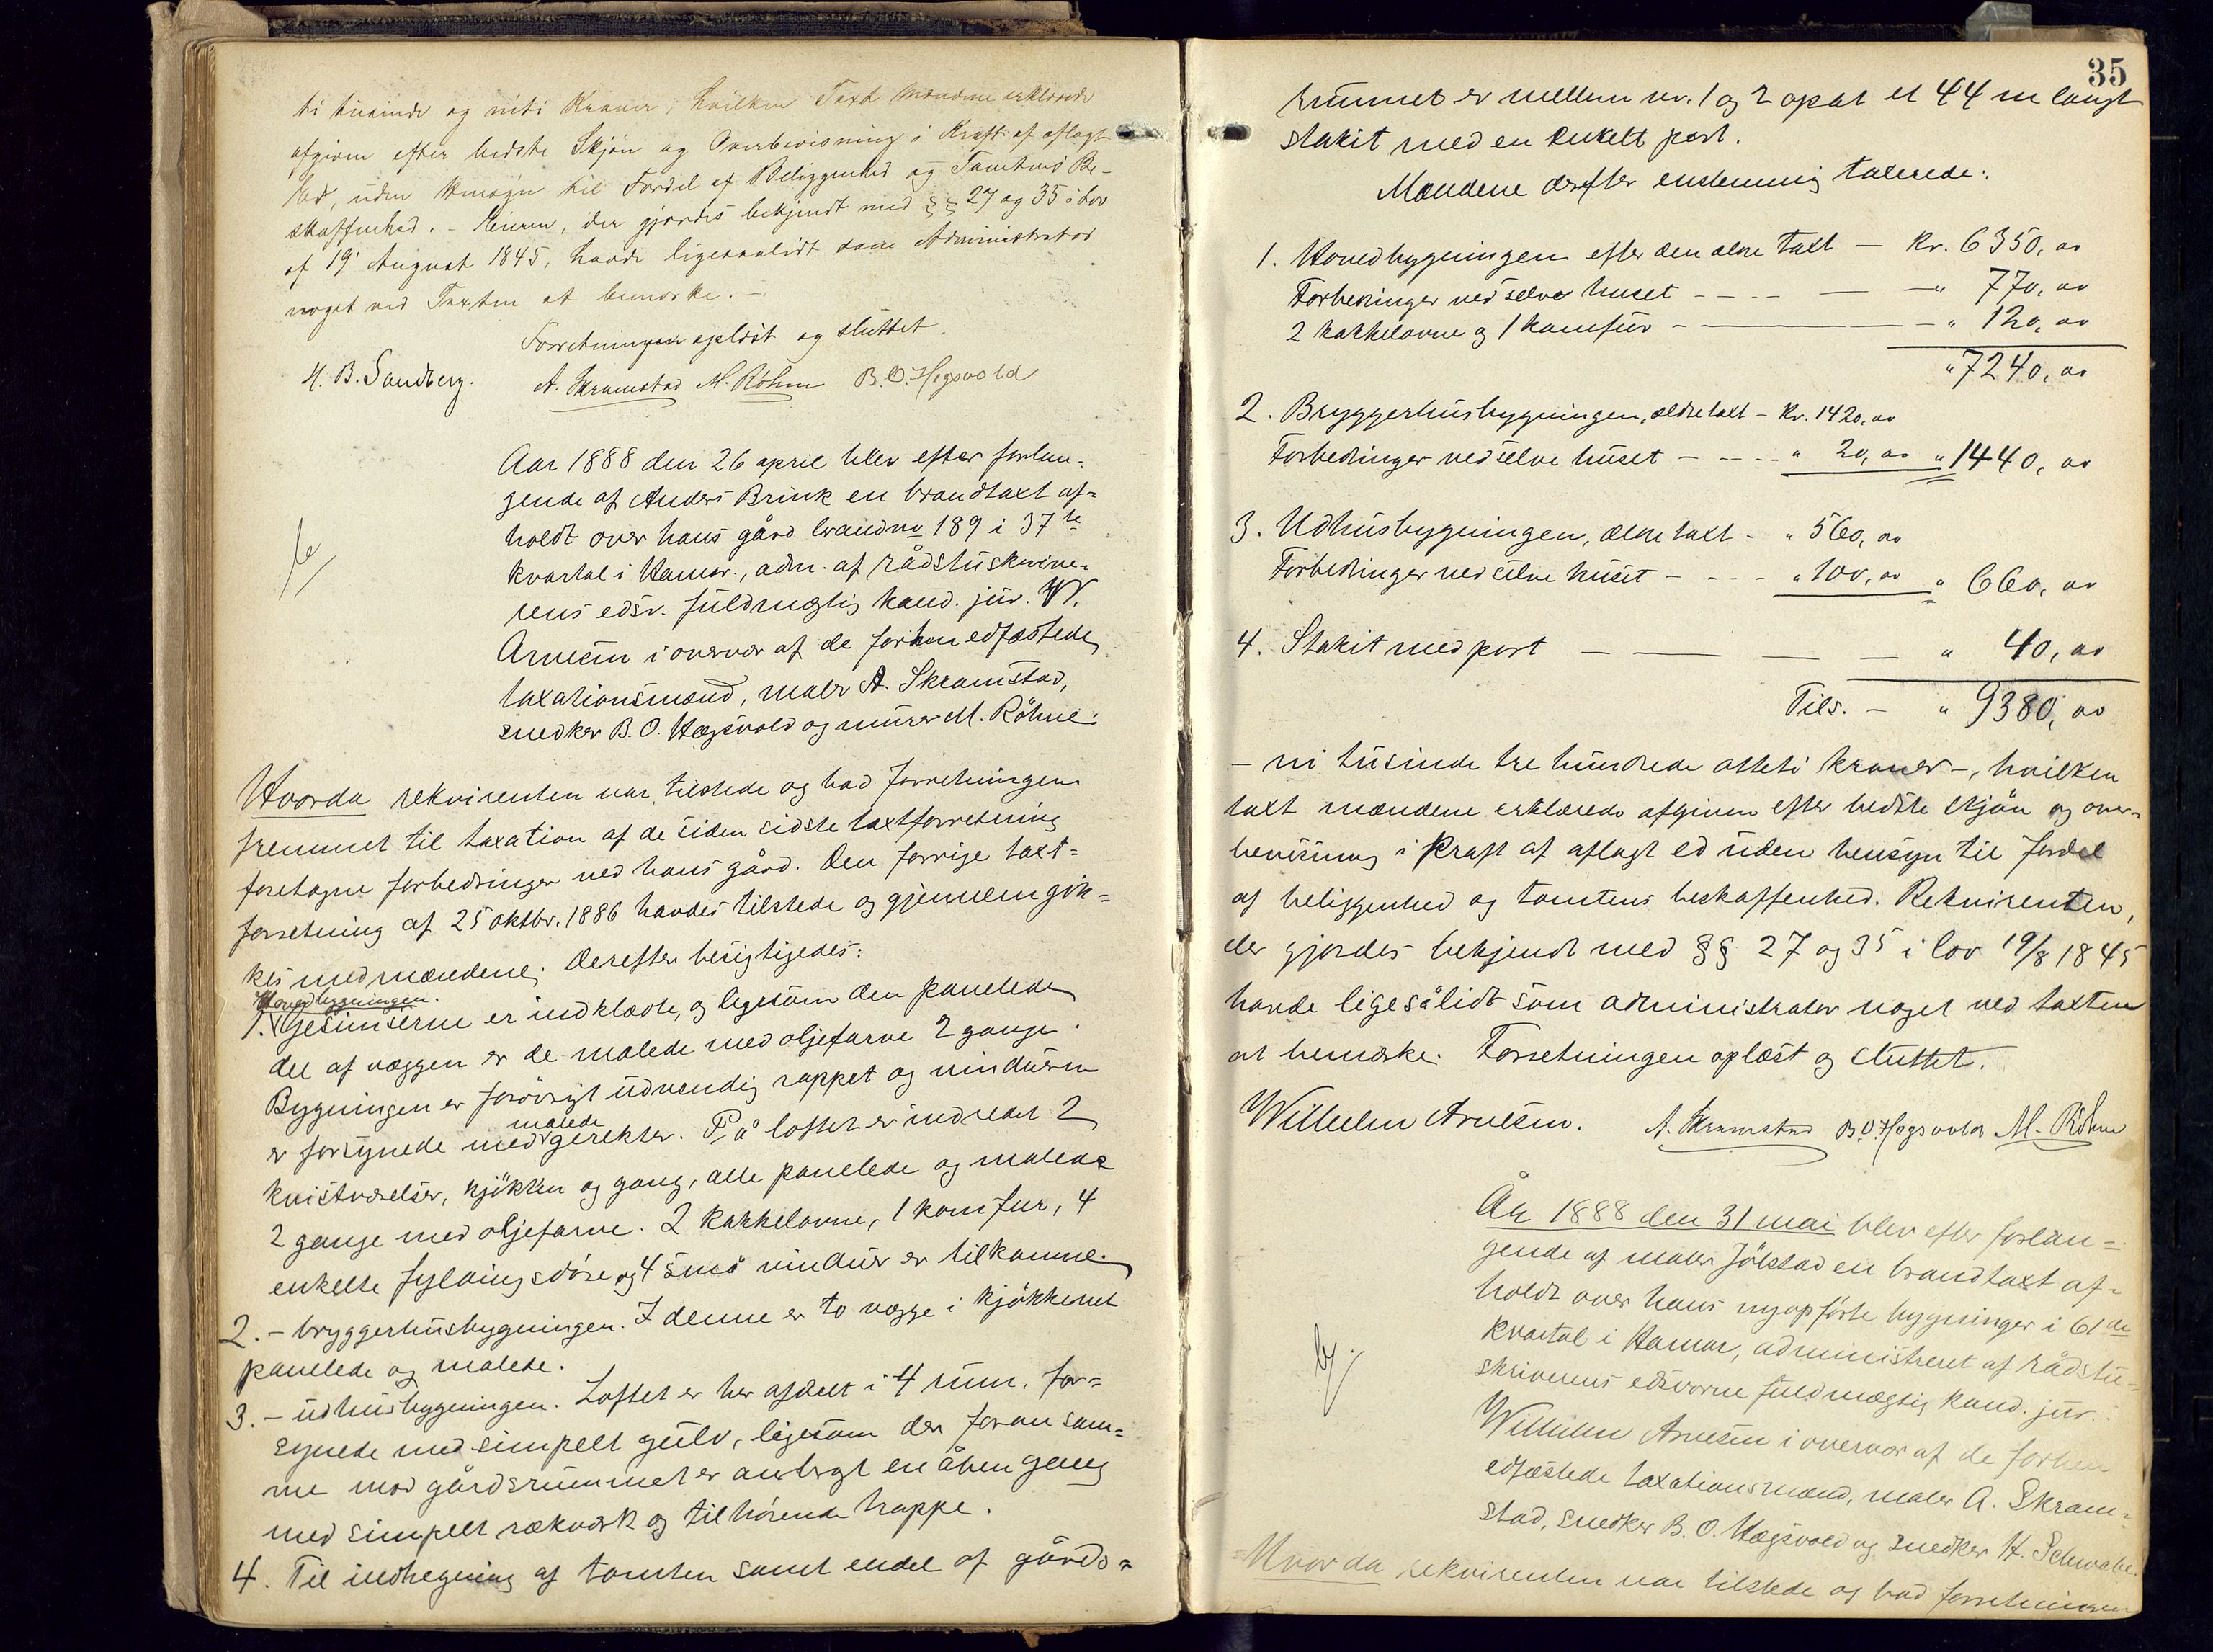 ti tusinde og niti Kroner; hvilken Taxt Mændene erklærede
afgiven efter bedste Skjøn og Overbevisning i Kraft af aflagt
Ed, uden Hensyn til Fordel af Beliggenhed og Tomtens Be-
skaffenhed. - Eieren, der gjordes bekjendt med §§ 27 og 35 i Lov
af 19' August 1845, havde ligesaalidt som Administrator
noget ved Taxten at bemærke. -
Forretningen oplæst og sluttet.
H. B. Sandberg. A. Skramstad M. Röhne B. O. Hegsvold
Aar 1888 den 26 april blev efter forlan-
gende af Anders Brink en brandtaxt af-
holdt over hans gård brandno 189 i 37te
kvartal i Hamar, adm. af rådstuskrive-
rens edsv. fuldmægtig kand. jur. W.
Arnesen i overvær af de forhen edfæstede
taxationsmænd, maler A. Skramstad,
snedker B. O. Hægsvold og murer M. Röhne:
Hvorda rekvirenten var tilstede og bad forretningen
fremmet til taxation af de siden sidste taxtforretning
foretagne forbedringer ved hans gård. Den forrige taxt-
forretning af 25 oktbr. 1886 havdes tilstede og gjennemgik-
kes med mændene; derefter besigtigedes:
Hovedbygningen.
1. Gesimserne er indklædte, og ligesom den panelede
del af væggen er de malede med oljefarve 2 gange.
Bygningen er forövrigt udvendig rappet og vinduerne
malede
er forsynede med gerekter. På loftet er indredet 2
kvistværelser, kjökken og gang, alle panelede og malede
2 gange med oljefarve. 2 kakkelovne, 1 komfur, 4
enkelte fyldningsdöre og 4 små vinduer er tilkomne.
2. - bryggerhusbygningen. I denne er to vægge i kjökkenet
panelede og malede.
3. - udhusbygningen. Loftet er her afdelt i 4 rum, for-
synede med simpelt gulv, ligesom der foran sam-
me mod gårdsrummet er anbragt en åben gang
med simpelt rækværk og tilhörende trappe.
4. Til indhegning af tomten samt endel af gårds-
35
rummet er mellem nr. 1 og 2 opsat et 44 m langt
stakit med en enkelt port.
Mændene derefter enstemmig taxerede:
1. Hovedbygningen efter den ældre taxt - Kr. 6350, oo
Forbedringer ved selve huset - - - - " 770, oo
2 kakkelovne og 1 komfur - - - " 120, oo
" 7240, oo
2. Bryggerhusbygningen, ældre taxt - Kr. 1420, oo
Forbedringer ved selve huset - - - - " 20, oo " 1440, oo
3. Udhusbygningen, ældre taxt - " 560, oo
Forbedringer ved selve huset - - - - " 100, oo " 660, oo
4. Stakit med port - - - - " 40, oo
Tils. - " 9380, oo
- ni tusinde tre hundrede otteti kroner -, hvilken
taxt mændene erklærede afgiven efter bedste skjön og over-
bevisning i kraft af aflagt ed uden hensyn til fordel
af beliggenhed og tomtens beskaffenhed. Rekvirenten,
der gjordes bekjendt med §§ 27 og 35 i lov 19/8 1845
havde ligesålidt som administrator noget ved taxten
at bemærke. Forretningen oplæst og sluttet.
Wilhelm Arnesen. A. Skramstad B. O. Hegsvold M. Röhne
År 1888 den 31 mai blev efter forlan-
gende af maler Jölstad en brandtaxt af-
holdt over hans nyopförte bygninger i 61de
kvartal i Hamar, administreret af rådstu-
skriverens edsvorne fuldmægtig kand. jur.
Wilhelm Arnesen i overvær af de forhen
edfæstede taxationsmænd, maler A. Skram-
stad, snedker B. O. Hægsvold og snedker H. Schwabe.
Hvorda rekvirenten var tilstede og bad forretningen